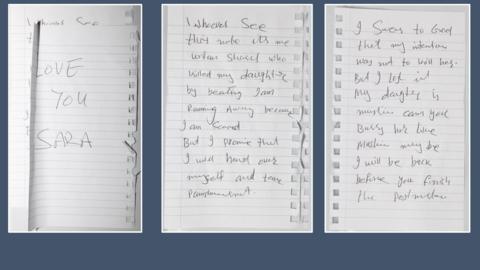 I whoever See
LOVE
YOU
SARA
I whoever See
that note its me
urfan sharif who
killed my daughter
by beating I am
Running Away because
I am Scared
But I promise that
I will hand over
myself and take
punishment.
I Swear to God
that my intention
was not to kill her.
But I lost it
My daughter is
muslim can you
Bury her like
Muslim may be
I will be back
before you finish
the postmortem